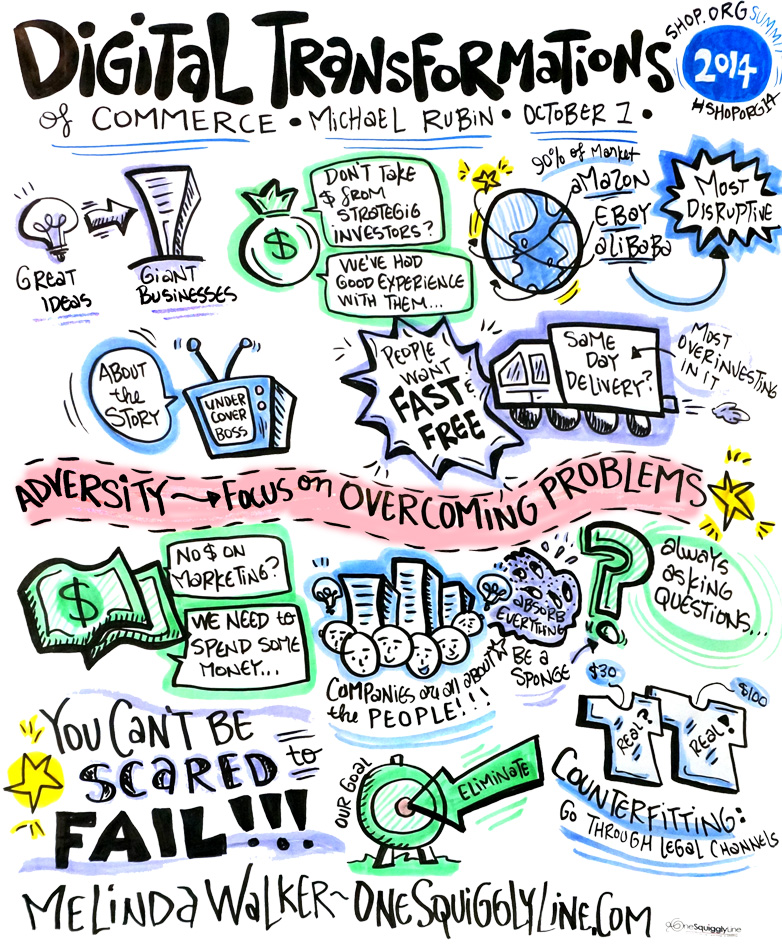 DIGITAL TRANSFORMATIONS
of COMMERCE • MICHAEL RUBIN • OCTOBER 1 •
SHOP.ORG SUMMIT
2014
#SHOPORG14
GREAT
IDEAS
GIANT
BUSINESSES
DON'T TAKE
$ FROM
STRATEGIG
INVESTORS?
$
WE'VE HAD
GOOD EXPERIENCE
WITH THEM...
90% of MARKET
AMAZON
EBAY
ALIBABA
MOST
DISRUPTIVE
ABOUT
the
STORY
UNDER
COVER
BOSS
PEOPLE
WANT
FAST &
FREE
SAME
DAY
DELIVERY?
MOST
OVERINVESTING
IN IT
ADVERSITY → FOCUS on OVERCOMING PROBLEMS
$
NO $ ON
MARKETING?
WE NEED to
SPEND SOME
MONEY...
COMPANIES are all ABOUT
the PEOPLE!!!
ABSORB
EVERYTHING
BE A
SPONGE
?
always
asking
QUESTIONS...
YOU CAN'T BE
SCARED to
FAIL!!!
OUR GOAL
ELIMINATE
$30
$100
REAL?
REAL!
COUNTERFITTING:
GO THROUGH LEGAL CHANNELS
MELINDA WALKER~ONESQUIGGLYLINE.COM
OneSquigglyLine